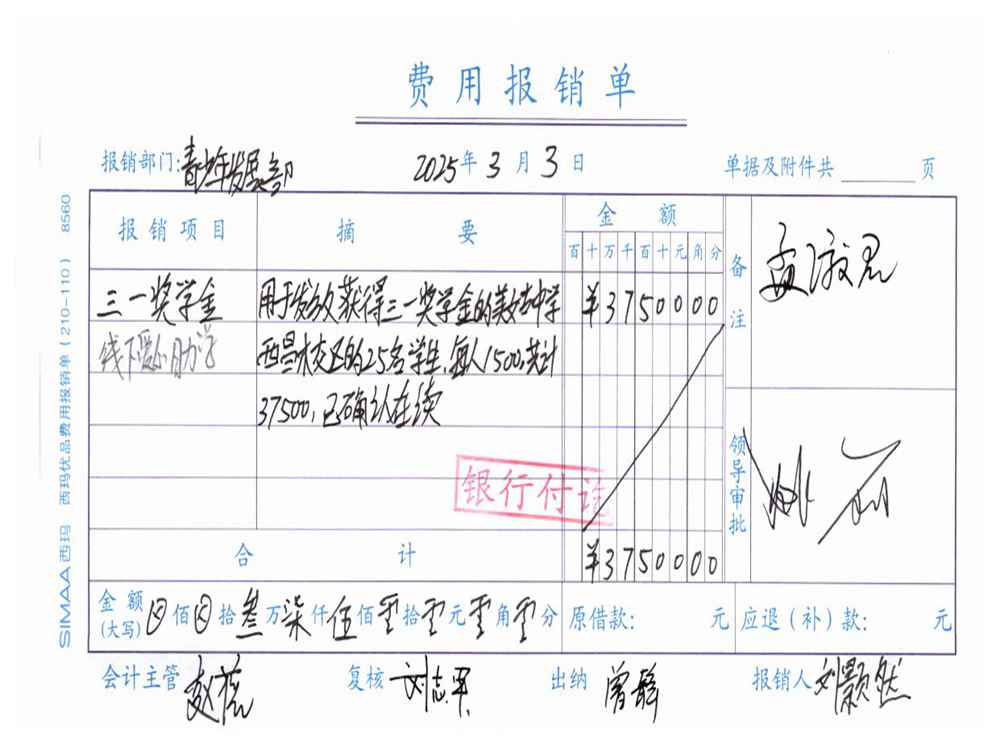 费用报销单
报销部门:青少年发展部 2025年3月3日 单据及附件共 页
报销项目 摘要 金额 备注
百十万千百十元角分
三一奖学金 用于发放获得三一奖学金的美姑中学 ¥3750000
线下爱心助学 西昌 校区的25名学生,每人1500,共计
37500,已确认在续
银行付讫
领导审批
合计 ¥3750000
金额(大写) 佰 拾叁万柒仟伍佰零拾零元零角零分 原借款: 元 应退(补)款: 元
会计主管 赵蕊 复核 刘志军 出纳 曾 报销人 刘颢然
SIMAA西玛 西玛优品费用报销单(210-110) 8560